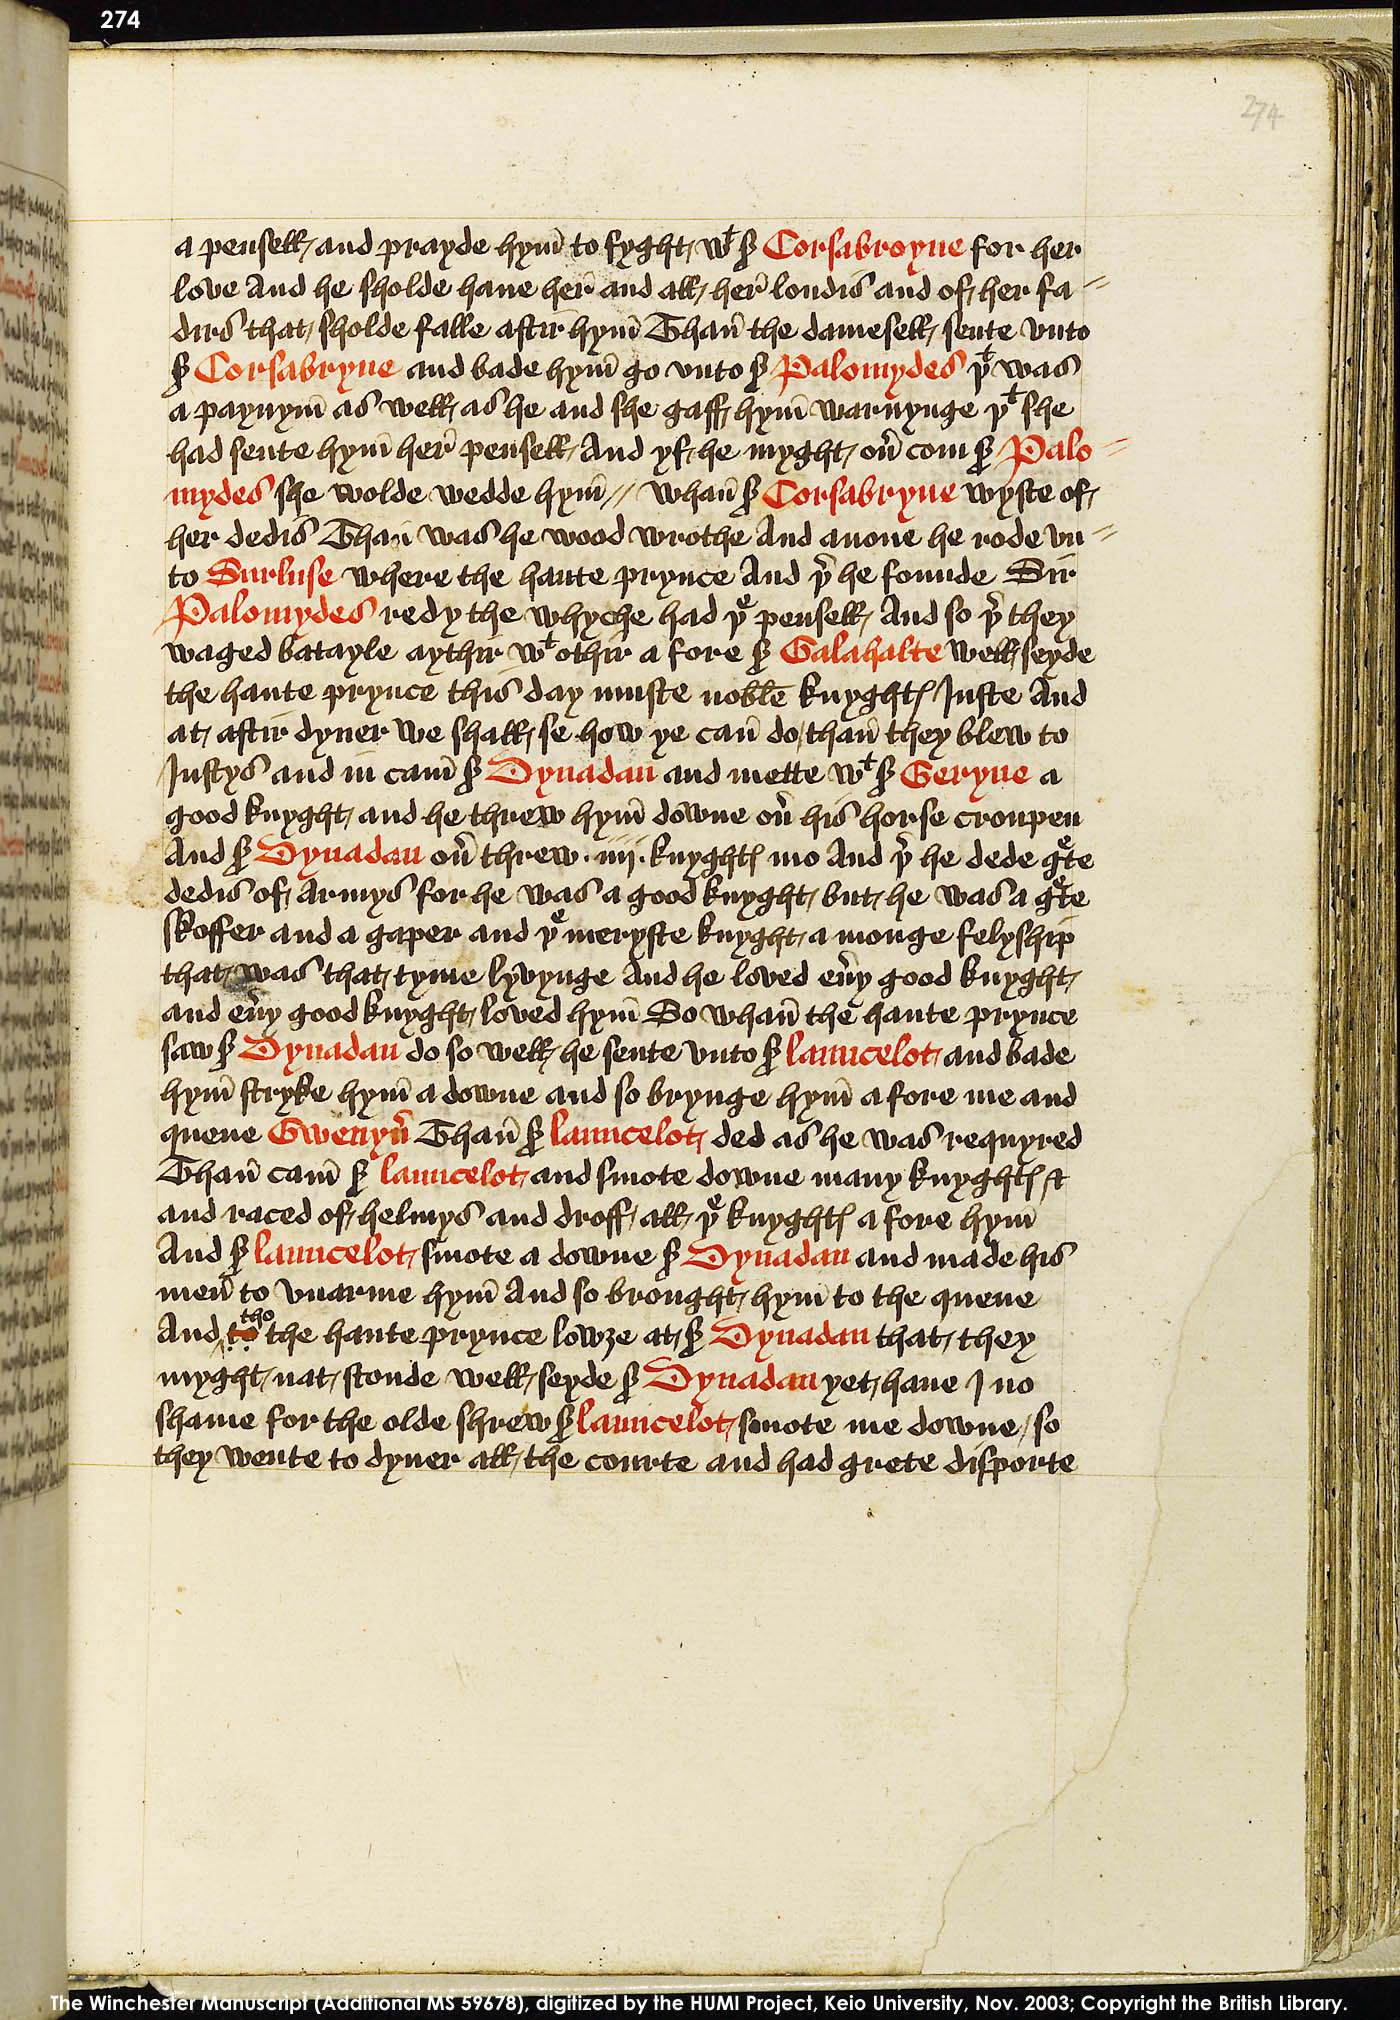 274
274
a pensell and prayde hym̄ to fyght wᵗ sꝛ Corsabroyne for her
love And he sholde haue her̄ and all her̄ londis and of her fa⸗
dirs that sholde falle aftir hym̄ Than̄ the damesell sente vnto
sꝛ Corsabryne and bade hym̄ go vnto sꝛ Palomydes yᵗ was
a paynym̄ as well as he and she gaff hym̄ warnynge yᵗ she
had sente hym̄ her̄ pensell And yf he myght ou̾ com sꝛ Palo⸗
mydes she wolde wedde hym̄ // whan̄ sꝛ Corsabryne wyste of
her dedis Than was he wood wrothe And anone he rode vn⸗
to Surluse where the haute prynce And y̾ he founde Sir
Palomydes redy the whyche had yᵉ pensell And so y̾ they
waged batayle aythir wᵗ othir a fore sꝛ Galahalte well seyde
the haute prynce this day muste noble knyghtꝭ Juste And
at aftir dyner we shall se how ye can̄ do / than̄ they blew to
Justys and in cam̄ sꝛ Dynadan and mette wᵗ sꝛ Geryne a
good knyght and he threw hym̄ downe ou̾ his horse croupen
And sꝛ Dynadan ou̾ threw · iiij · knyghtꝭ mo And y̾ he dede gᵉte
dedis of Armys for he was a good knyght but he was a gᵉte
skoffer and a gaper and yᵉ meryste knyght a monge felyship
that was that tyme lyvynge And he loved eu̾y good knyght
and eu̾y good knyght loved hym̄ So whan̄ the haute prynce
saw sꝛ Dynadan do so well he sente vnto sꝛ launcelot and bade
hym̄ stryke hym̄ a downe and so brynge hym̄ a fore me and
quene Gwenyu̾ Than̄ sꝛ launcelot ded as he was requyred
Than̄ cam̄ sꝛ launcelot and smote downe many knyghtꝭ &
and raced of helmys and droff all yᵉ knyghtꝭ a fore hym̄
And sꝛ launcelot smote a downe sꝛ Dynadan and made his
men̄ to vnarme hym̄ And so brought hym̄ to the quene
And to tho the haute prynce lowȝe at sꝛ Dynadan that they
myght nat stonde well seyde sꝛ Dynadan yet haue I no
shame for the olde shrew sꝛ launcelot smote me downe / so
they wente to dyner all the courte and had grete disporte
The Winchester Manuscript (Additional MS 59678), digitized by the HUMI Project, Keio University, Nov. 2003; Copyright the British Library.